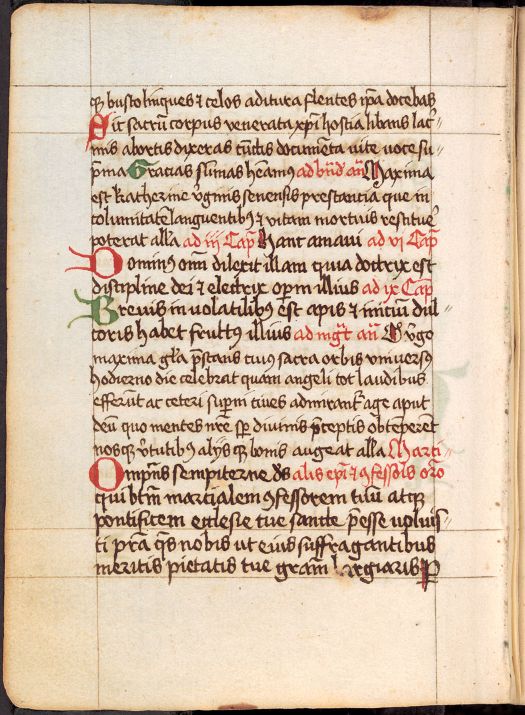 q̄ busto linques ⁊ celos aditura flentes ip̄a docebas
Sic sacrū corpus venerata xp̄i hostia libans lac''
mis abortis dixeras cūctis documēta vite voce su''
p̄ma Gracias sūmas hēam9 ad bn̄d an̄ Maxima
est Katherine v̄gīnis senensis prestantia que in
columitatē languentib9 ⁊ vitam mortuis restitue᷑
poterat all̄a ad iij Cap̄ Hanc amaui ad vi Cap̄
Dominus om̄ dilexit illam quia doctrix est
discipline dei ⁊ electrix op̄m illius ad ix Cap̄
Brevis in volatilib9 est apis ⁊ iniciū dul''
coris habet fructus illius ad mḡt an̄ O v̄go
maxima gl̄a p̄stans cuius sacra orbis vniuerso
hodierno die celebrat quam angeli tot laudibus
efferūt ac ceteri sup̄m ciues admirant᷑ age aput
deū quo mentes nr̄e sp̄ diuinis p̄ceptis obtēperēt
nosq̄ v̄tutib9 alijsq̄ bonis augeat all̄a Marci
Omp̄ns sempiterne ds̄ alis ep̄i ⁊ 9fessoīs or̄o
qui btm̄ marcialem 9fessorem tuū atq̄
pontificem ecclesie tue sancte p̄esse voluis''
ti p̄ra q̄s nobis ut eius suffragantibus
meritis pietatis tue grām largiaris P